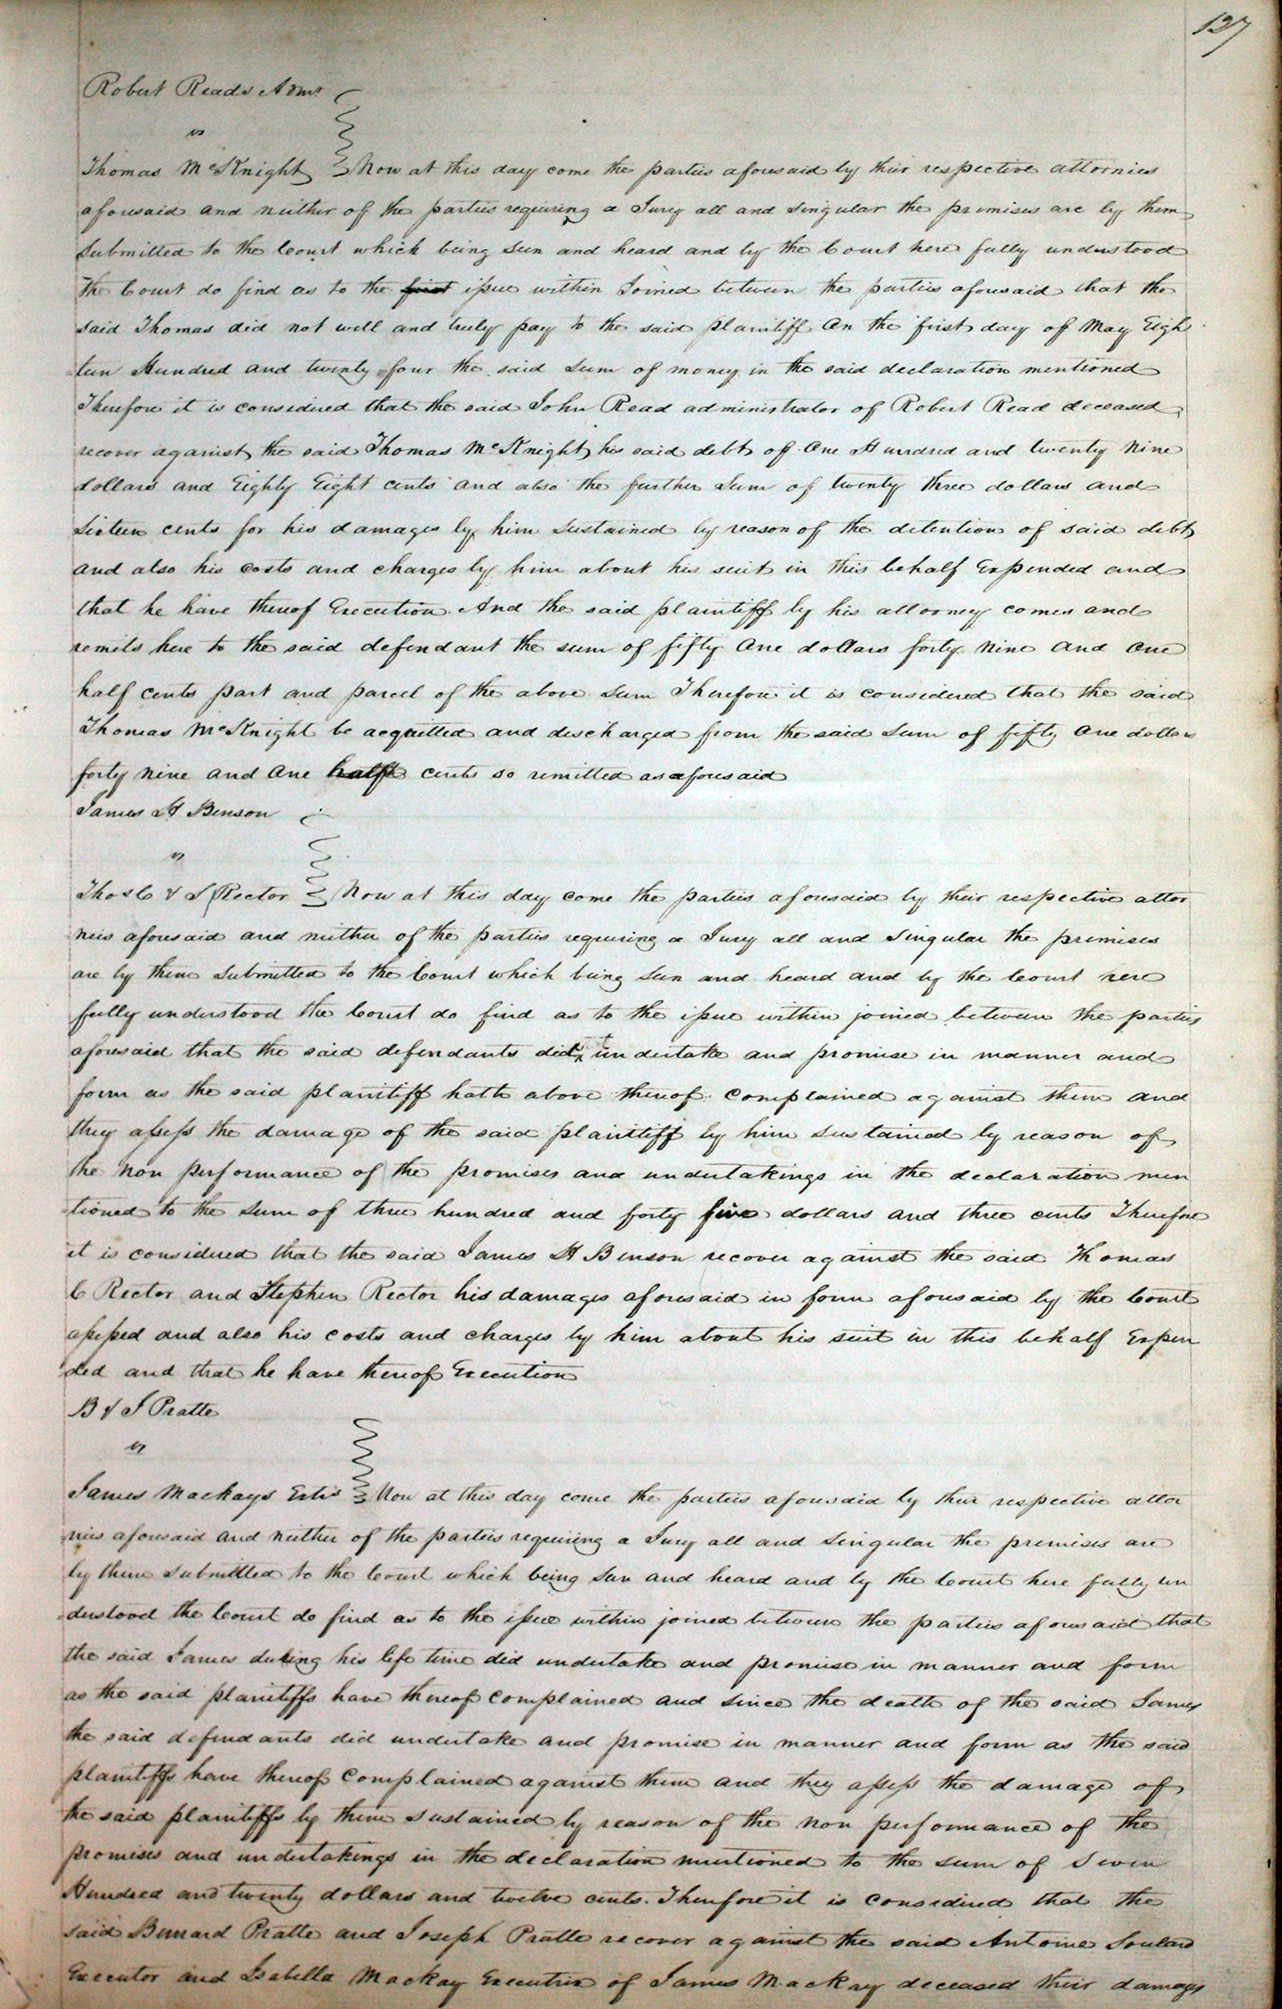 127
Robert Reads Admr
vs
Thomas McKnight Now at this day come the parties aforesaid by their respective attornies
aforesaid and neither of the parties requiring a Jury all and singular the premises are by them
submitted to the Court which being seen and heard and by the Court here fully understood
The Court do find as to the first issue within Joined between the parties aforesaid that the
said Thomas did not well and truly pay to the said plaintiff On the first day of May Eigh
teen Hundred and twenty four the said sum of money in the said declaration mentioned
Therefore it is considered that the said John Read administrator of Robert Read deceased
recover against the said Thomas McKnight his said debt of One Hundred and twenty Nine
dollars and Eighty Eight cents and also the further Sum of twenty three dollars and
Sixteen cents for his damages by him Sustained by reason of the detention of said debt
and also his costs and charges by him about his suit in this behalf Expended and
that he have thereof Execution. And the said plaintiff by his attorney comes and
remits here to the said defendant the sum of fifty One dollars forty Nine and One
half cents part and parcel of the above Sum Therefore it is considered that the said
Thomas McKnight be acquitted and discharged from the said Sum of fifty One dollars
forty nine and One half cents so remitted as aforesaid
James H Benson
vs
Thos C & S Rector Now at this day come the parties aforesaid by their respective attor
nies aforesaid and neither of the parties requiring a Jury all and Singular the premises
are by them submitted to the Court which being seen and heard and by the Court here
fully understood the Court do find as to the issue within joined between the parties
aforesaid that the said defendants did undertake and promise in manner and
form as the said plaintiff hath above thereof complained against them and
they assess the damage of the said plaintiff by him sustained by reason of
the Non performance of the promises and undertakings in the declaration men
tioned to the Sum of three hundred and forty five dollars and three cents Therefore
it is considered that the said James H Benson recover against the said Thomas
C Rector and Stephen Rector his damages aforesaid in form aforesaid by the Court
assessed and also his costs and charges by him about his suit in this behalf Expen
ded and that he have thereof Execution
B & J Pratte
vs
James Mackays Extrs Now at this day come the parties aforesaid by their respective attor
nies aforesaid and neither of the parties requiring a Jury all and Singular the premises are
by them submitted to the Court which being seen and heard and by the Court here fully un
derstood the Court do find as to the issue within joined between the parties aforesaid that
the said James during his life time did undertake and promise in manner and form
as the said plaintiffs have thereof complained and since the death of the said James
the said defendants did undertake and promise in manner and form as the said
plaintiffs have thereof complained against them and they assess the damage of
the said plaintiffs by them sustained by reason of the non performance of the
promises and undertakings in the declaration mentioned to the sum of Seven
Hundred and twenty dollars and twelve cents. Therefore it is considered that the
said Bernard Pratte and Joseph Pratte recover against the said Antoine Soulard
Executor and Isabella Mackay Executrix of James Mackay deceased their damages